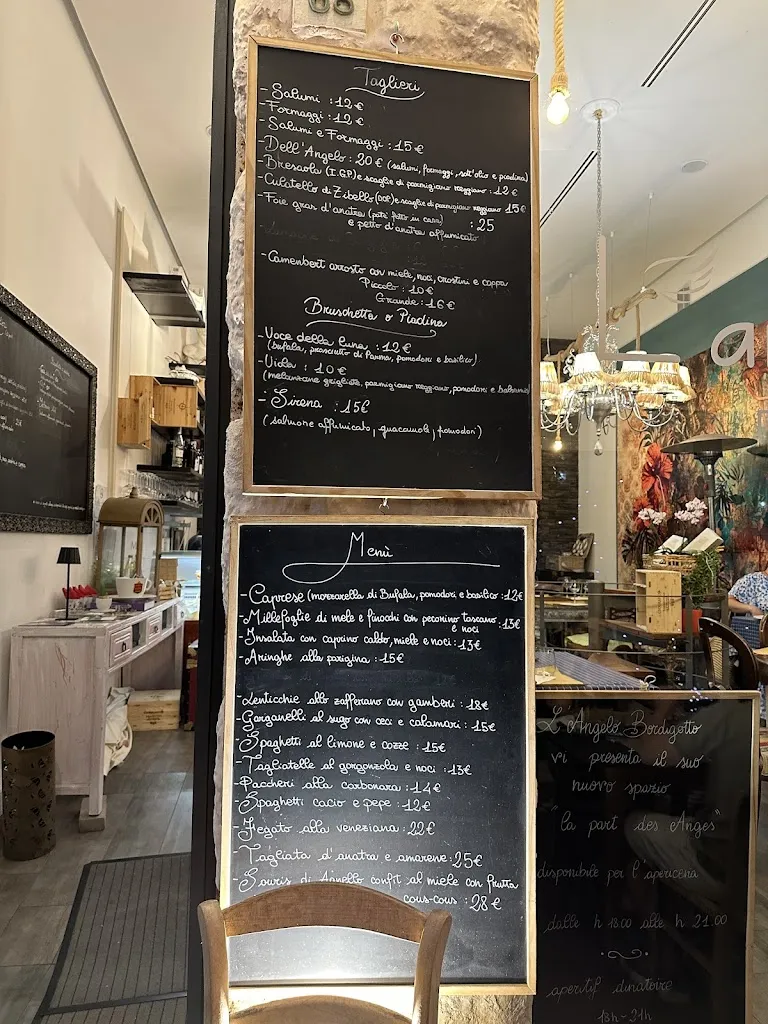 68
Taglieri
- Salumi : 12 €
- Formaggi : 12 €
- Salumi e Formaggi : 15 €
- Dell'Angelo : 20 € (salumi, formaggi, sott'olio e piadina)
- Bresaola (I.G.P) e scaglie di parmigiano reggiano : 12 €
- Culatello di Zibello (DOP) e scaglie di parmigiano reggiano 15 €
- Foie gras d'anatra (paté fatto in casa) : 25
e petto d'anatra affumicato
- Camembert arrosto con miele, noci, crostini e coppa
Piccolo : 10 €
Grande : 16 €
Bruschetta o Piadina
- Voce della luna : 12 €
(bufala, prosciutto di Parma, pomodori e basilico)
- Viola : 10 €
(melanzane grigliate, parmigiano reggiano, pomodori e balsamico
- Sirena : 15€
(salmone affumicato, guacamole, pomodori)
Menù
- Caprese (mozzarella di Bufala, pomodori e basilico : 12€
- Millefoglie di mele e finocchi con pecorino toscano : 13€
e noci
- Insalata con caprino caldo, miele e noci : 13€
- Aringhe alla parigina : 15€
- Lenticchie allo zafferano con gamberi : 18€
- Garganelli al sugo con ceci e calamari : 15€
- Spaghetti al limone e cozze : 15€
- Tagliatelle al gorgonzola e noci : 13€
- Paccheri alla carbonara : 14€
- Spaghetti cacio e pepe : 12€
- Fegato alla veneziana : 22€
- Tagliata d'anatra e amarene : 25€
- Souris di Agnello confit al miele con frutta
cous-cous : 28 €
a
L'Angelo Bordigotto
vi presenta il suo
nuovo spazio
"la part des Anges"
disponibile per l'apericena
dalle h 18.00 alle h 21.00
aperitif dinatoire
18h - 21h